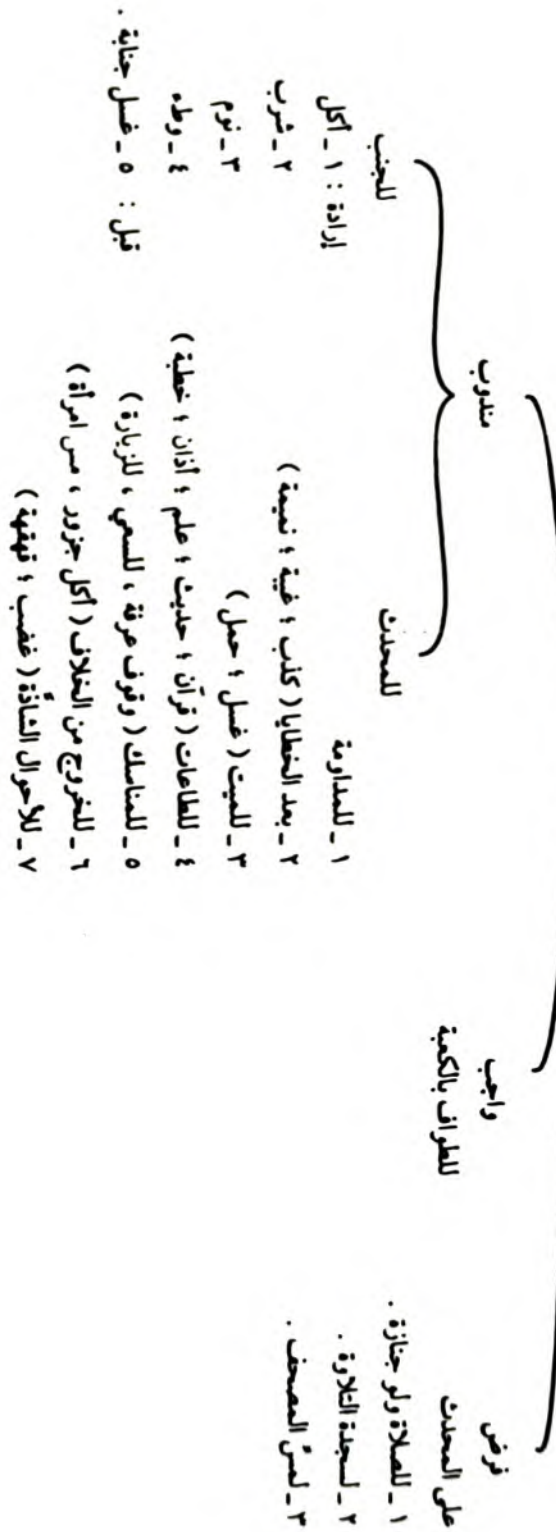 فرض
على المحدث
١ ـ للصلاة ولو جنازة .
٢ ـ لسجدة التلاوة .
٣ ـ لمسّ المصحف .
واجب
للطواف بالكعبة
مندوب
للمحدث
١ ـ للمداومة
٢ ـ بعد الخطايا ( كذب ؛ غيبة ؛ نميمة )
٣ ـ للميت ( غسل ؛ حمل )
٤ ـ للطاعات ( قرآن ؛ حديث ؛ علم ؛ أذان ؛ خطبة )
٥ ـ للمناسك ( وقوف عرفة ، للسعي ، للزيارة )
٦ ـ للخروج من الخلاف ( أكل جزور ، مس امرأة )
٧ ـ للأحوال الشاذّة ( غضب ؛ قهقهة )
للجنب
إرادة : ١ ـ أكل
٢ ـ شرب
٣ ـ نوم
٤ ـ وطء
قبل : ٥ ـ غسل جنابة .